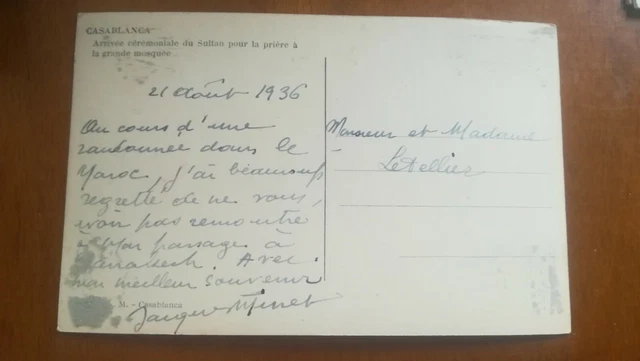 CASABLANCA
Arrivée cérémoniale du Sultan pour la prière à
la grande mosquée
21 Août 1936
Au cours d'une
randonnée dans le
Maroc, j'ai beaucoup
regretté de ne vous
avoir pas rencontré
à mon passage à
Marrakech. Avec
mon meilleur souvenir
M. - Casablanca
Jacques
Monsieur et Madame
Letellier